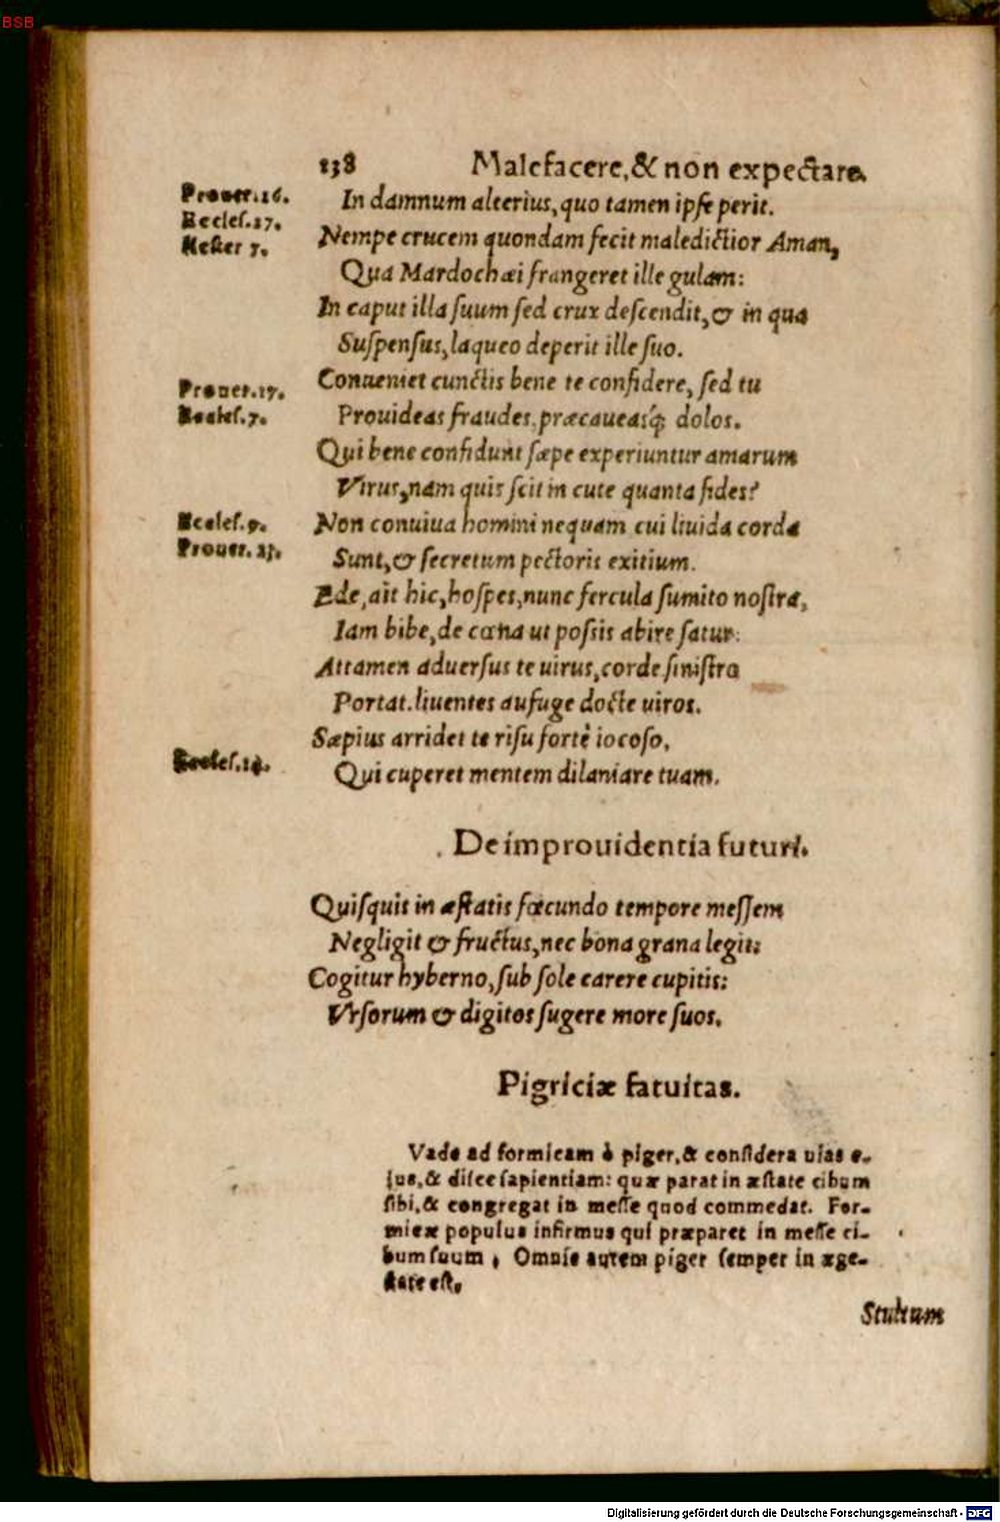 BSB
138 Malefacere, & non expectare.
Prouer. 16. In damnum alterius, quo tamen ipse perit.
Eccles. 27. Nempe crucem quondam fecit maledictior Aman,
Hester 7. Qua Mardochæi frangeret ille gulam:
In caput illa suum sed crux descendit, & in qua
Suspensus, laqueo deperit ille suo.
Prouer. 17. Conueniet cunctis bene te confidere, sed tu
Eccles. 7. Prouideas fraudes, præcaueasq́; dolos.
Qui bene confidunt sæpe experiuntur amarum
Virus, nam quis scit in cute quanta fides?
Eccles. 9. Non conuiua homini nequam cui liuida corda
Prouer. 23. Sunt, & secretum pectoris exitium.
Ede, ait hic, hospes, nunc fercula sumito nostra,
Iam bibe, de cœna ut possis abire satur:
Attamen aduersus te uirus, corde sinistra
Portat. liuentes aufuge docte uiros.
Sæpius arridet te risu fortè iocoso,
Eccles. 14. Qui cuperet mentem dilaniare tuam.
De improuidentia futuri.
Quisquis in æstatis fœcundo tempore messem
Negligit & fructus, nec bona grana legit:
Cogitur hyberno, sub sole carere cupitis:
Vrsorum & digitos sugere more suos.
Pigriciæ fatuitas.
Vade ad formicam ò piger, & considera uias e-
ius, & disce sapientiam: quæ parat in æstate cibum
sibi, & congregat in messe quod commedat. For-
micæ populus infirmus qui præparet in messe ci-
bum suum. Omnis autem piger semper in æge-
state est.
Stultum
Digitalisierung gefördert durch die Deutsche Forschungsgemeinschaft - DFG